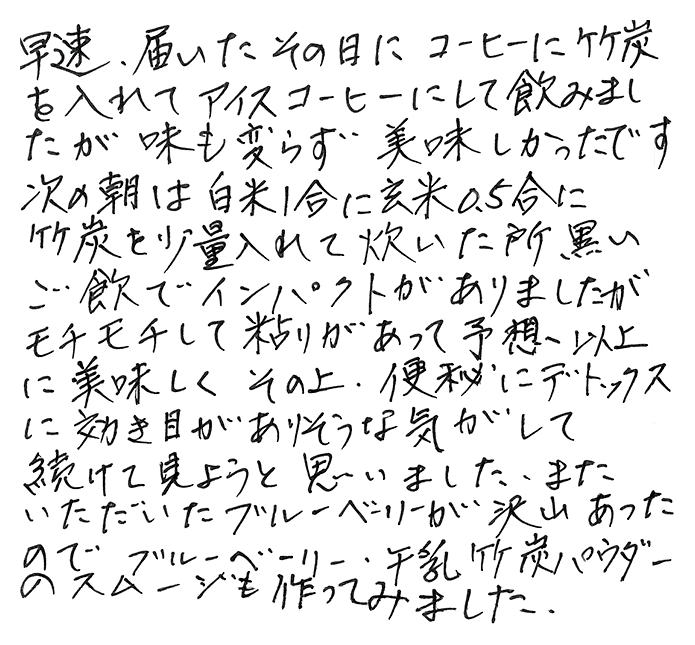 早速、届いたその日にコーヒーに竹炭
を入れてアイスコーヒーにして飲みまし
たが味も変らず美味しかったです
次の朝は白米1合に玄米0.5合に
竹炭を少量入れて炊いた所黒い
ご飯でインパクトがありましたが
モチモチして粘りがあって予想へ以上
に美味しく その上、便秘にデトックス
に効き目がありそうな気がして
続けて見ようと思いました、また
いただいたブルーベリーが沢山あった
ので ブルーベーリー、牛乳竹炭パウダー
のスムージも作ってみました、